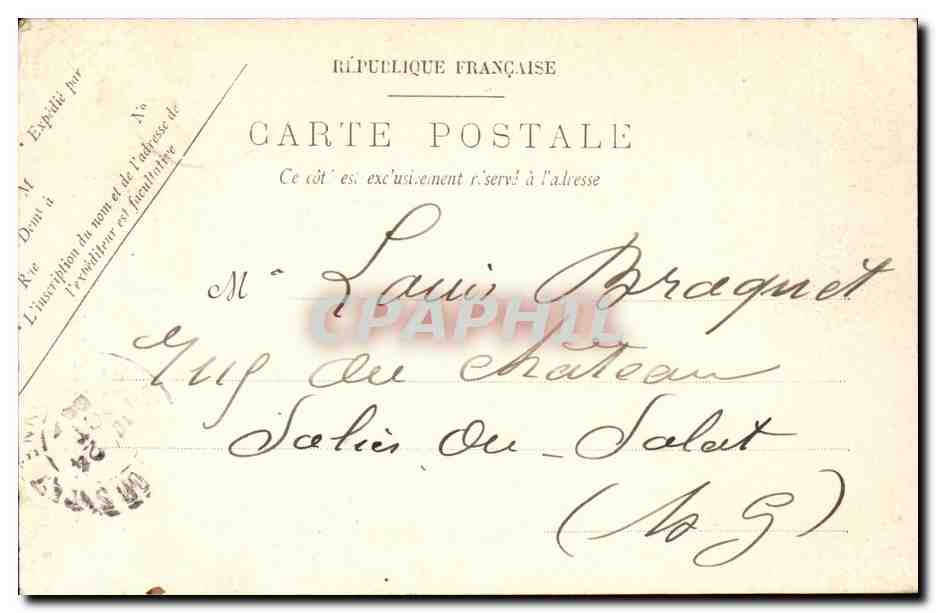 RÉPUBLIQUE FRANÇAISE
CARTE POSTALE
Ce côté est exclusivement réservé à l'adresse
* Expédié par
No
M
Demt à
Rue
* L'inscription du nom et de l'adresse de
l'expéditeur est facultative
M. Louis Braquet
du château
Salies du-Salat
(H G)
CPAPHIL
24